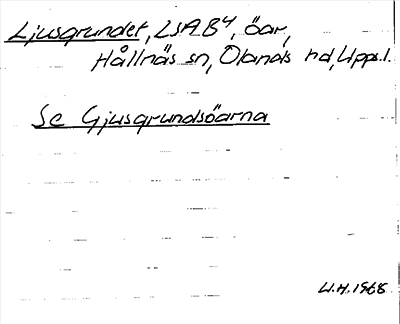 Ljusgrundet, LSA B4, öar,
Hållnäs sn, Olands hd, Upps.l.
Se Gjusgrundsöarna
U.H. 1968